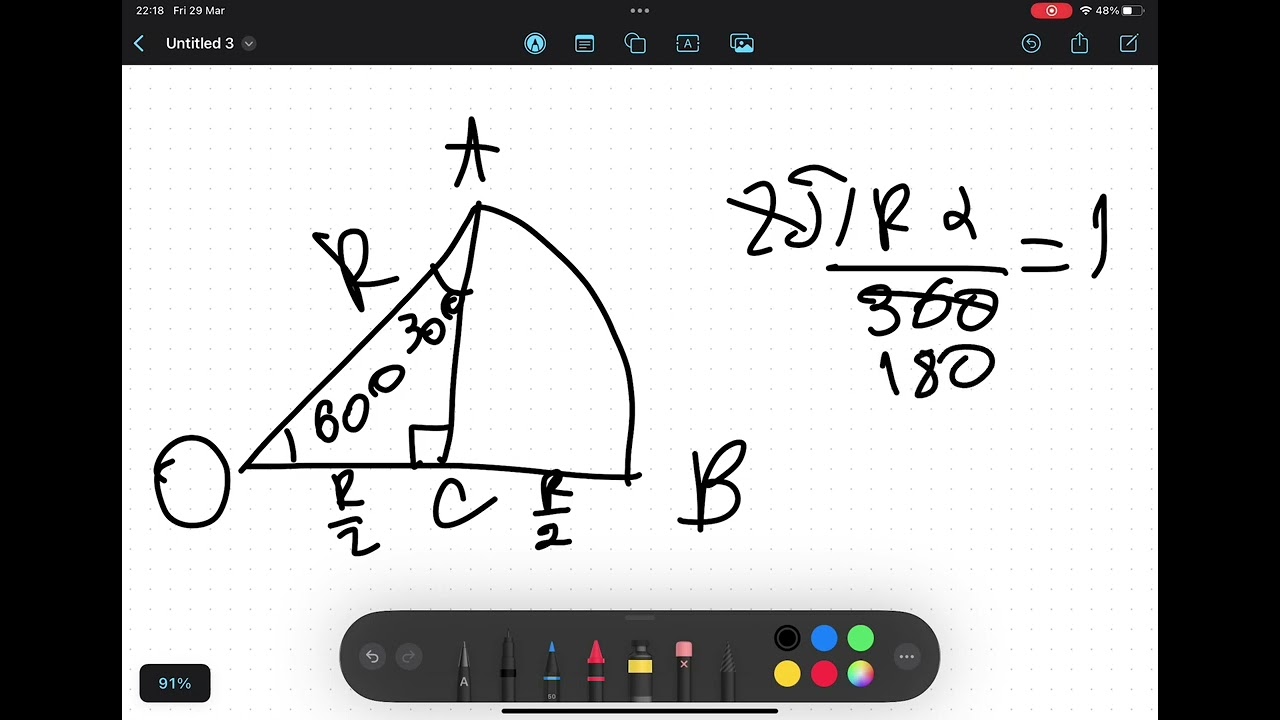 22:18 Fri 29 Mar
48%
Untitled 3
A
R
30°
60°
O
R/2
C
R/2
B
2πRα/360 = 1
180
A
50
91%